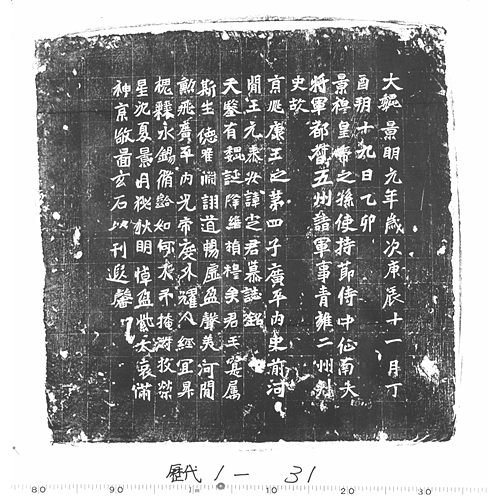 大魏景明元年歲次庚辰十一月丁
酉朔十九日乙卯
景穆皇帝之孫使持節侍中征南大
將軍都督五州諸軍事青雍二州刺
史故
京兆康王之第四子廣平內史前河
間王元泰安諱定君墓誌銘
天鑒有魏誕降維禎穆矣君王寔屬
斯生德雅淵詡道暢虛盈聲美河間
勳飛廣平內光帝庭外耀人經宜昇
槐永錫脩齡如何掩榮
星沉夏景月秋明悼盈紫太哀滿
神京敬圖玄石以刊遐馨
歷代 1 — 31
80 90 1 10 20 30